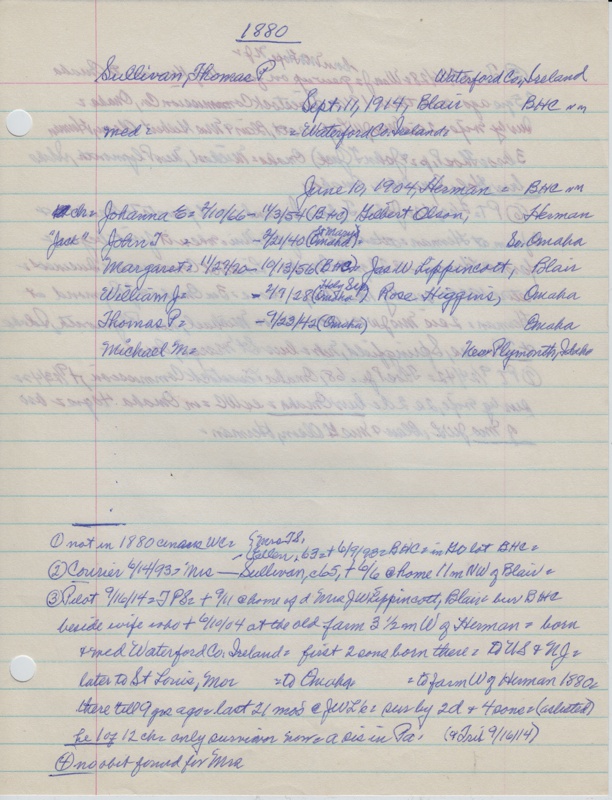 1880
Sullivan, Thomas P. Waterford Co, Ireland
Sept. 11, 1914, Blair BHC nm
med = = Waterford Co. Ireland =
June 10, 1904 Herman = BHC nm
ch = Johanna E = 2/10/66 - 11/3/54 (BHC) Gilbert Olson, Herman
"Jack" John T - 2/21/40 (St Marys Omaha) = So. Omaha
Margaret = 11/29/70 - 10/13/56 (BHC) Jas W Lippincott, Blair
William J = - 2/9/28 (Holy Sep Omaha) Rose Higgins, Omaha
Thomas P = - 9/23/42 (Omaha) Omaha
Michael M = New Plymouth, Idaho
① not in 1880 census WC = { Mrs TS,
- Ellen, 63 = + 6/9/93 = BHC = in HO lot BHC =
② Courier 6/14/93 = Mrs — Sullivan, c65, + 6/6 @ home 11 m NW of Blair =
③ Pilot 9/16/14 = TPS = + 9/11 @ home of d Mrs JW Lippincott, Blair = bur BHC
beside wife who + 6/10/04 at the old farm 3 1/2 m W of Herman = born
& med Waterford Co. Ireland = first 2 sons born there = to US & NJ =
later to St Louis, Mo = to Omaha = to farm W of Herman 1880 =
there till 9 yrs ago = last 21 mos @ JWL's = sur by 2d & 4 sons = (as listed)
he 1 of 12 ch = only survivor now = a sis in Pa. (& Trib 9/16/14)
④ no obit found for Mrs